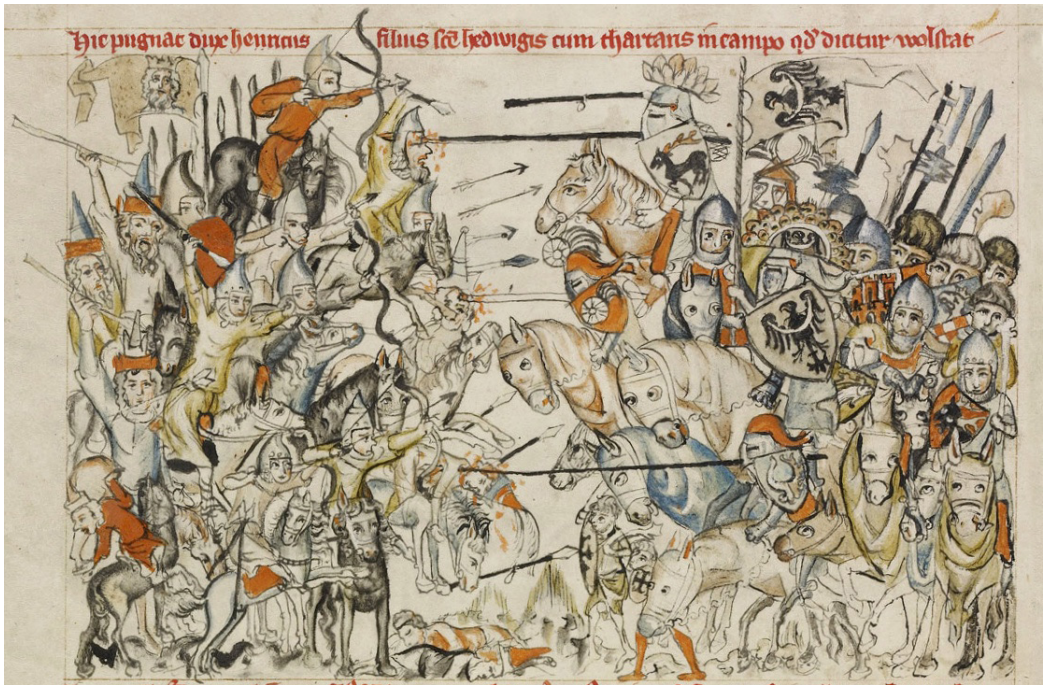 Hic pugnat dux henricus filius sce hedwigis cum thartaris in campo qd dicitur wolstat